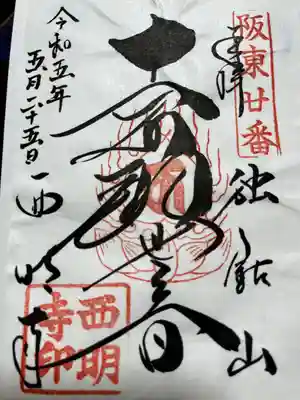 阪東廿番
奉拝
独鈷山
十一面観世音
西明寺
令和五年
五月二十五日
西明
寺印